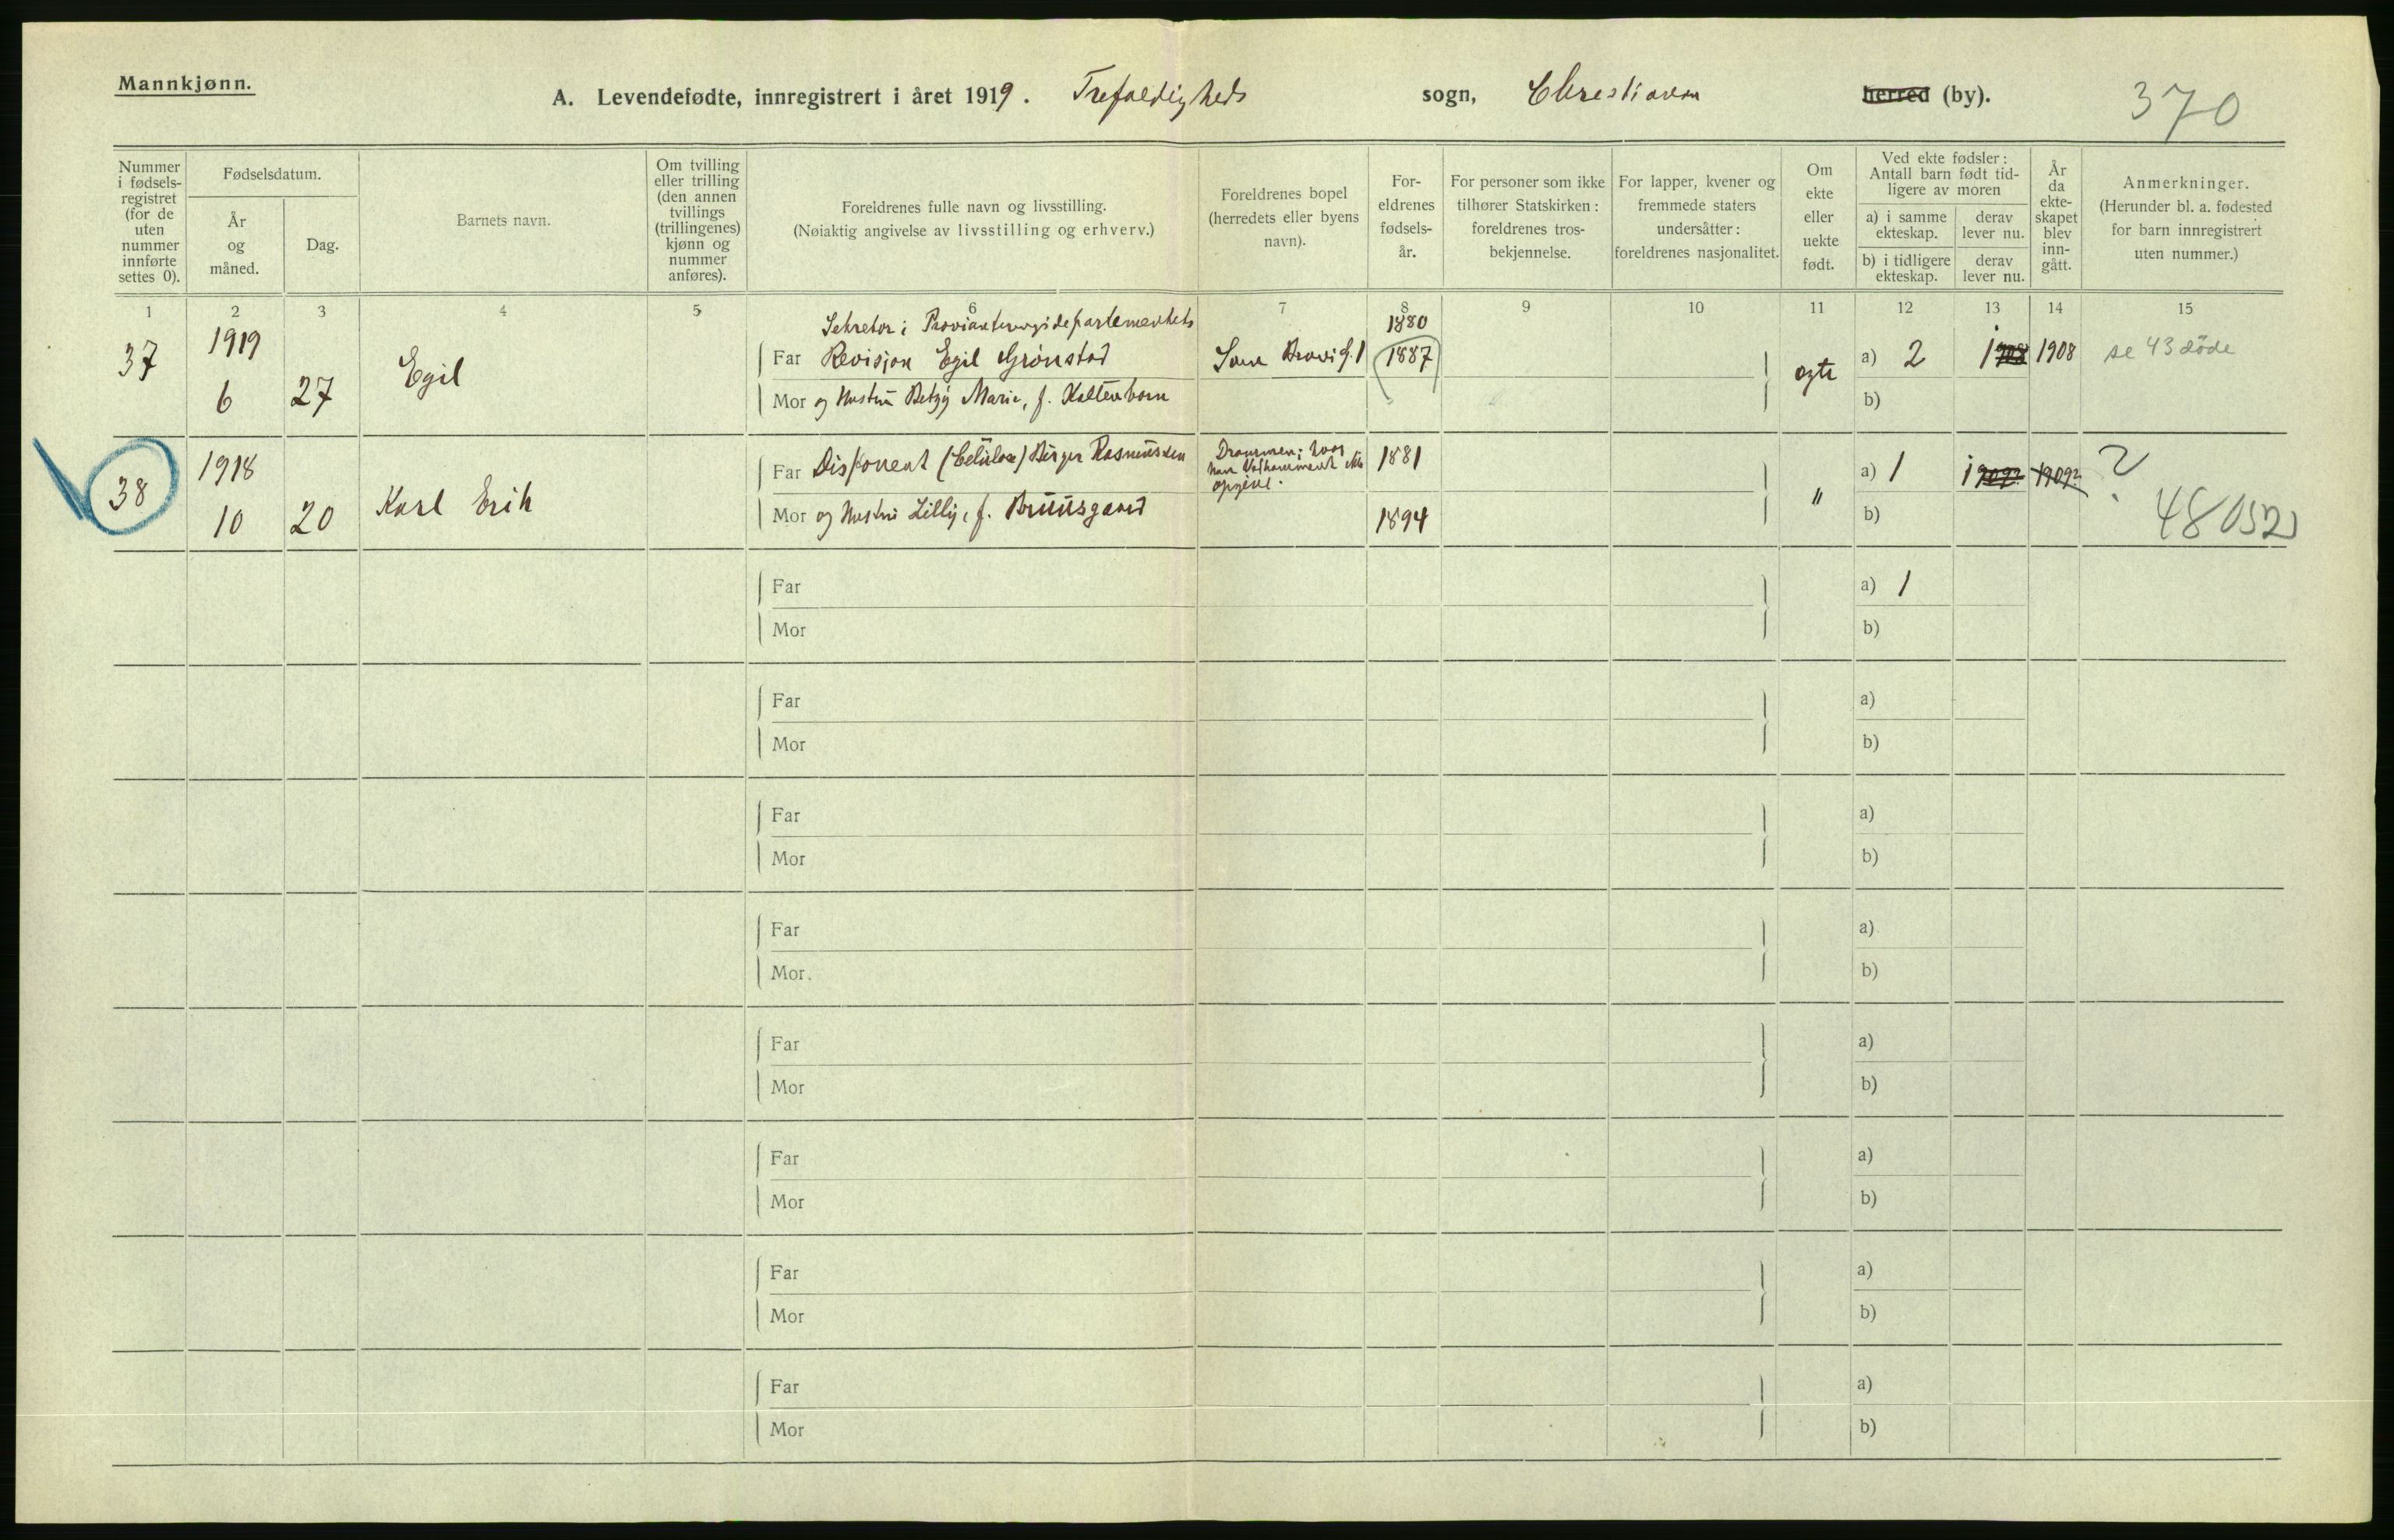 Mannkjønn.
A. Levendefødte, innregistrert i året 1919. Trefoldigheds sogn, Christiania herred (by).
370
Nummer i fødsels-registret (for de uten nummer innførte settes 0).
Fødselsdatum.
År og måned.
Dag.
Barnets navn.
Om tvilling eller trilling (den annen tvillings (trillingenes) kjønn og nummer anføres).
Foreldrenes fulle navn og livsstilling.
(Nøiaktig angivelse av livsstilling og erhverv.)
Foreldrenes bopel (herredets eller byens navn).
For-eldrenes fødsels-år.
For personer som ikke tilhører Statskirken: foreldrenes tros-bekjennelse.
For lapper, kvener og fremmede staters undersåtter: foreldrenes nasjonalitet.
Om ekte eller uekte født.
Ved ekte fødsler: Antall barn født tid-ligere av moren
a) i samme ekteskap.
derav lever nu.
b) i tidligere ekteskap.
derav lever nu.
År da ekte-skapet blev inn-gått.
Anmerkninger.
(Herunder bl. a. fødested for barn innregistrert uten nummer.)
1 2 3 4 5 6 7 8 9 10 11 12 13 14 15
37 1919 6 27 Egil
Sekretær i Provianteringsdepartementets
Far Revisjon Egil Grønstad
Mor og Hustru Betzy Marie, f. Kaltenborn
1880
1887
ægte a) 2 1 1908 se 43 døde
b)
38 1918 10 20 Karl Erik
Far Disponent (Celulose) Birger Rasmussen
Mor og Hustru Lilly, f. Bruusgaard
Drammen;
opgivt.
1881
1894
" a) 1 1 1909? ?
b)
48052
Far a) 1
Mor b)
Far a)
Mor b)
Far a)
Mor b)
Far a)
Mor. b)
Far a)
Mor b)
Far a)
Mor b)
Far a)
Mor b)
Far a)
Mor b)